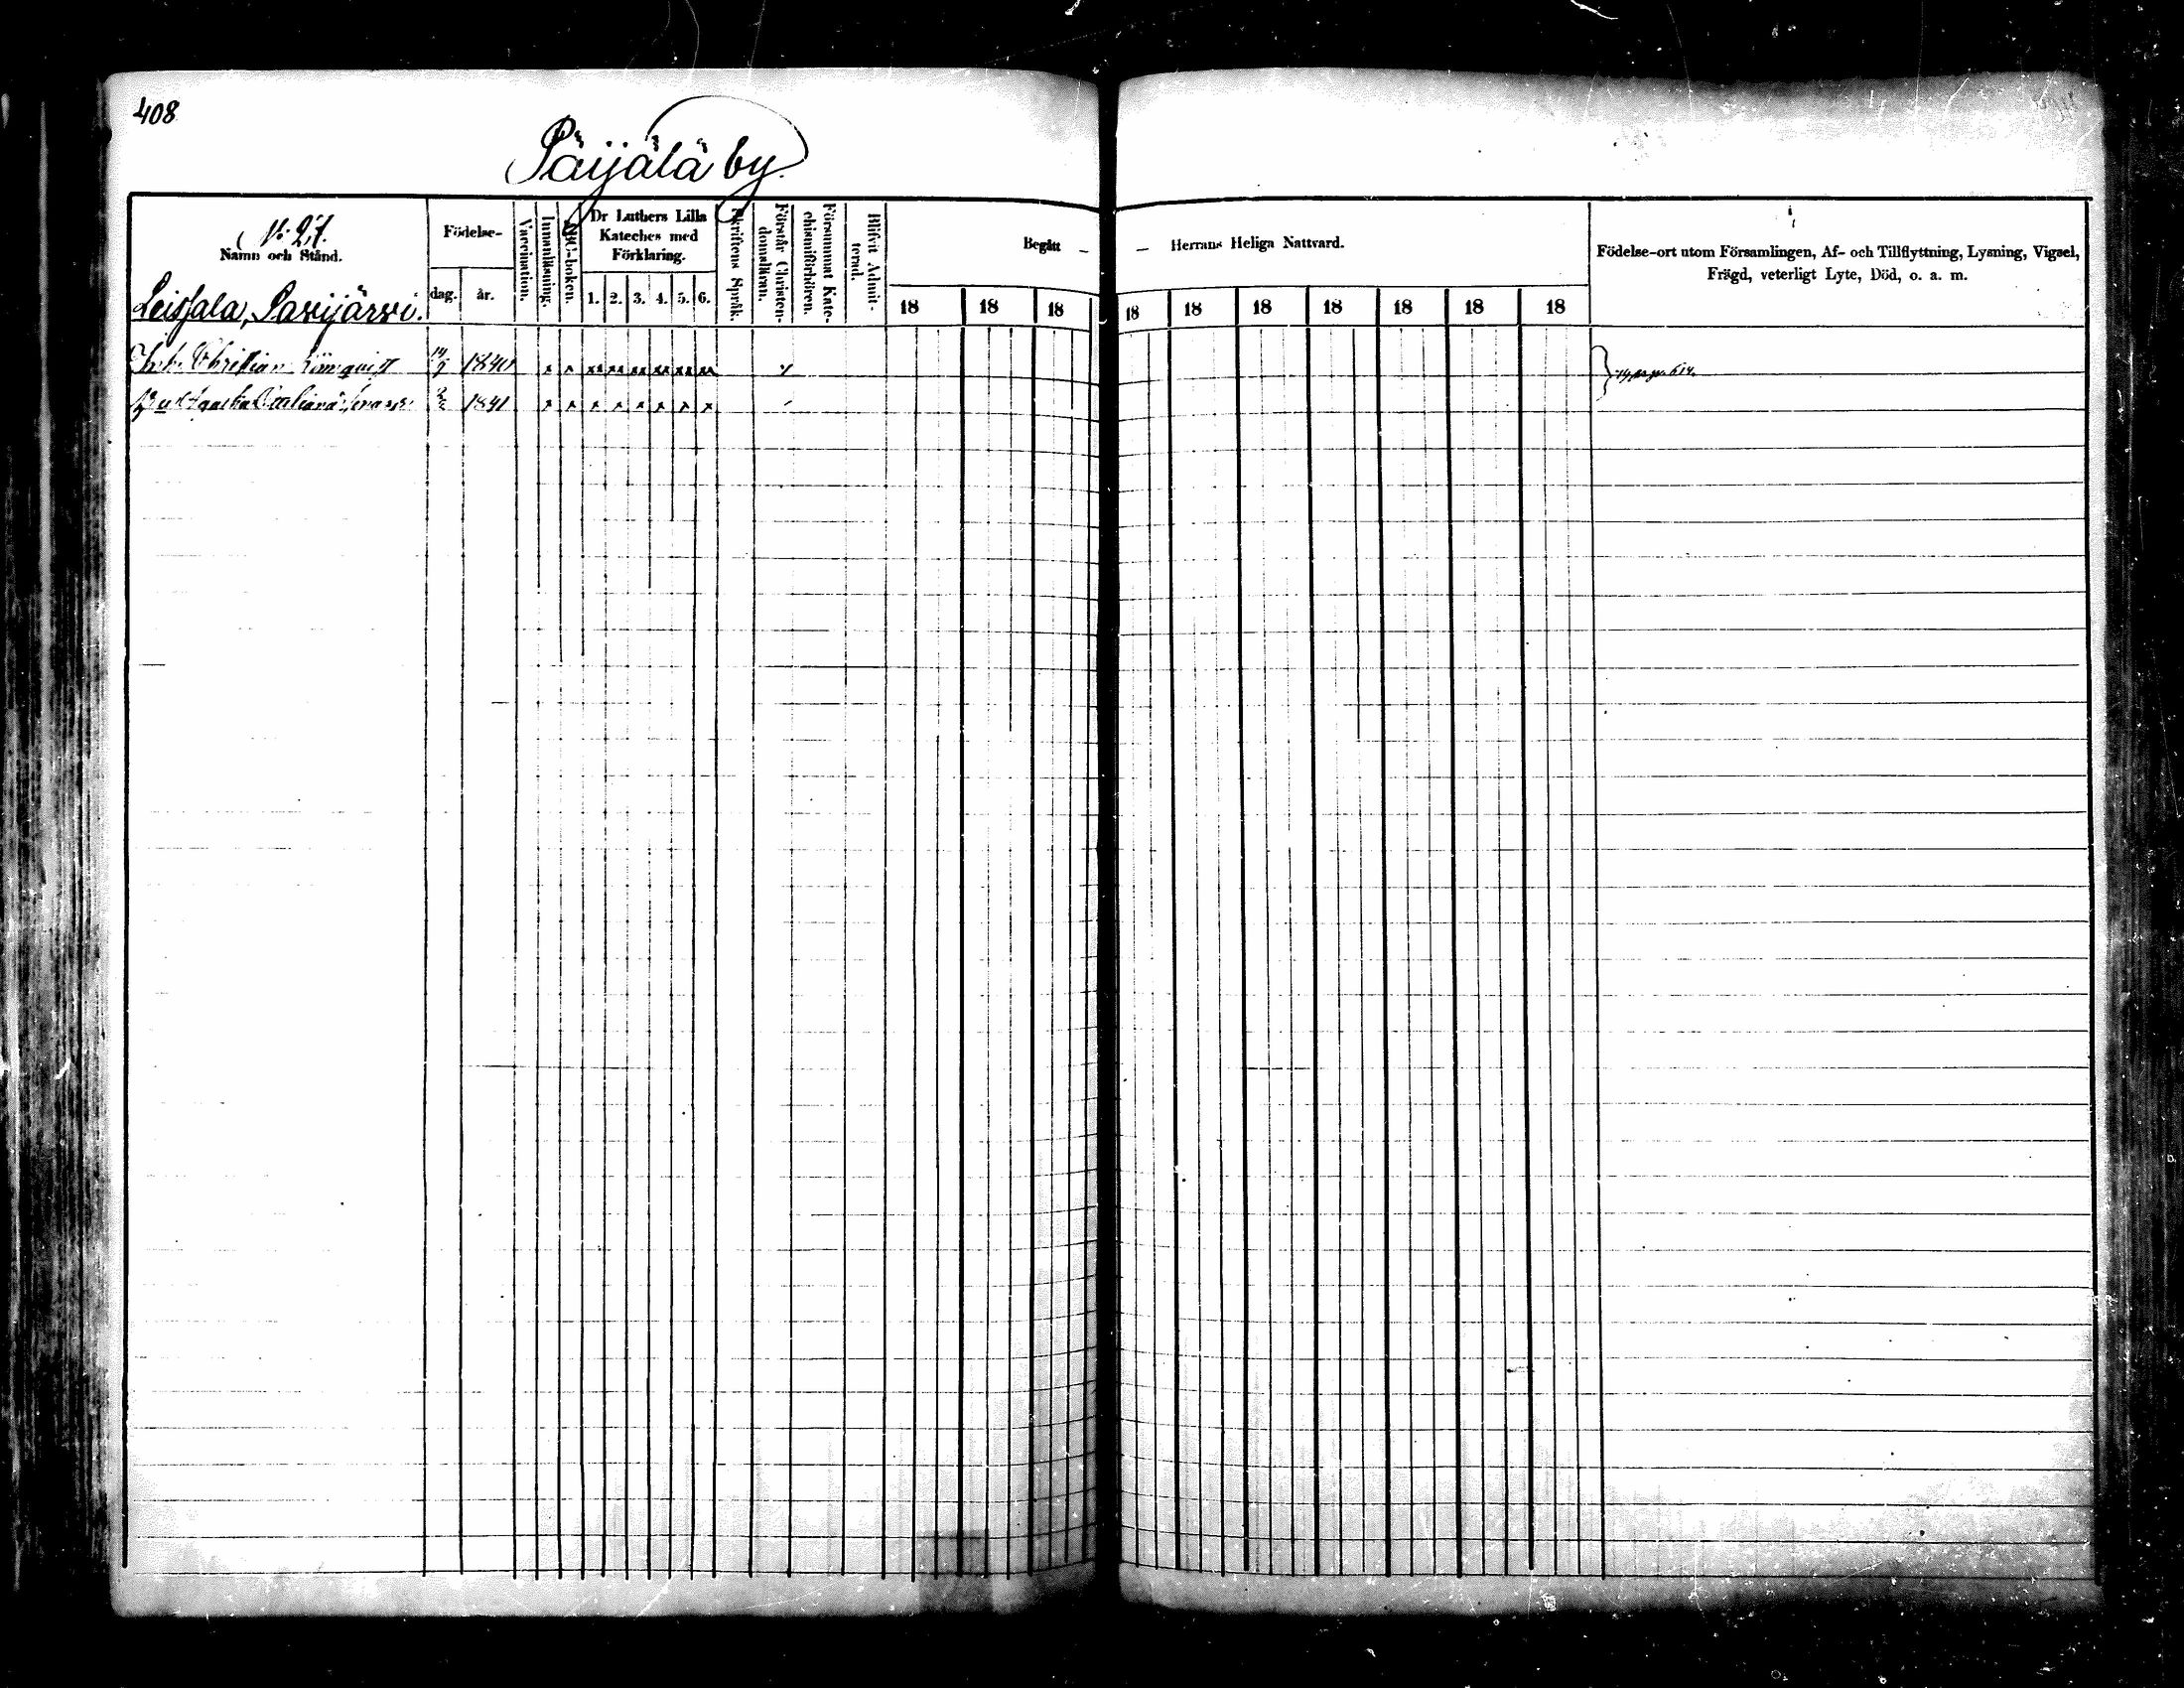 408
Päijälä by.
N:o 27.
Namn och Stånd.
Leissala, Savijärvi.
Födelse-
dag.
år.
Vaccination.
Innanläsning.
ABC-boken.
Dr Luthers Lilla
Kateches med
Förklaring.
1. 2. 3. 4. 5. 6.
Skriftens Språk.
Förstår Christen-
domsläran.
Försummat Kate-
chismiförhören.
Blifvit Admit-
terad.
Begått —
18 18 18
— Herrans Heliga Nattvard.
18 18 18 18 18 18 18
Födelse-ort utom Församlingen, Af- och Tillflyttning, Lysning, Vigsel,
Frägd, veterligt Lyte, Död, o. a. m.
Christian 1840
1841